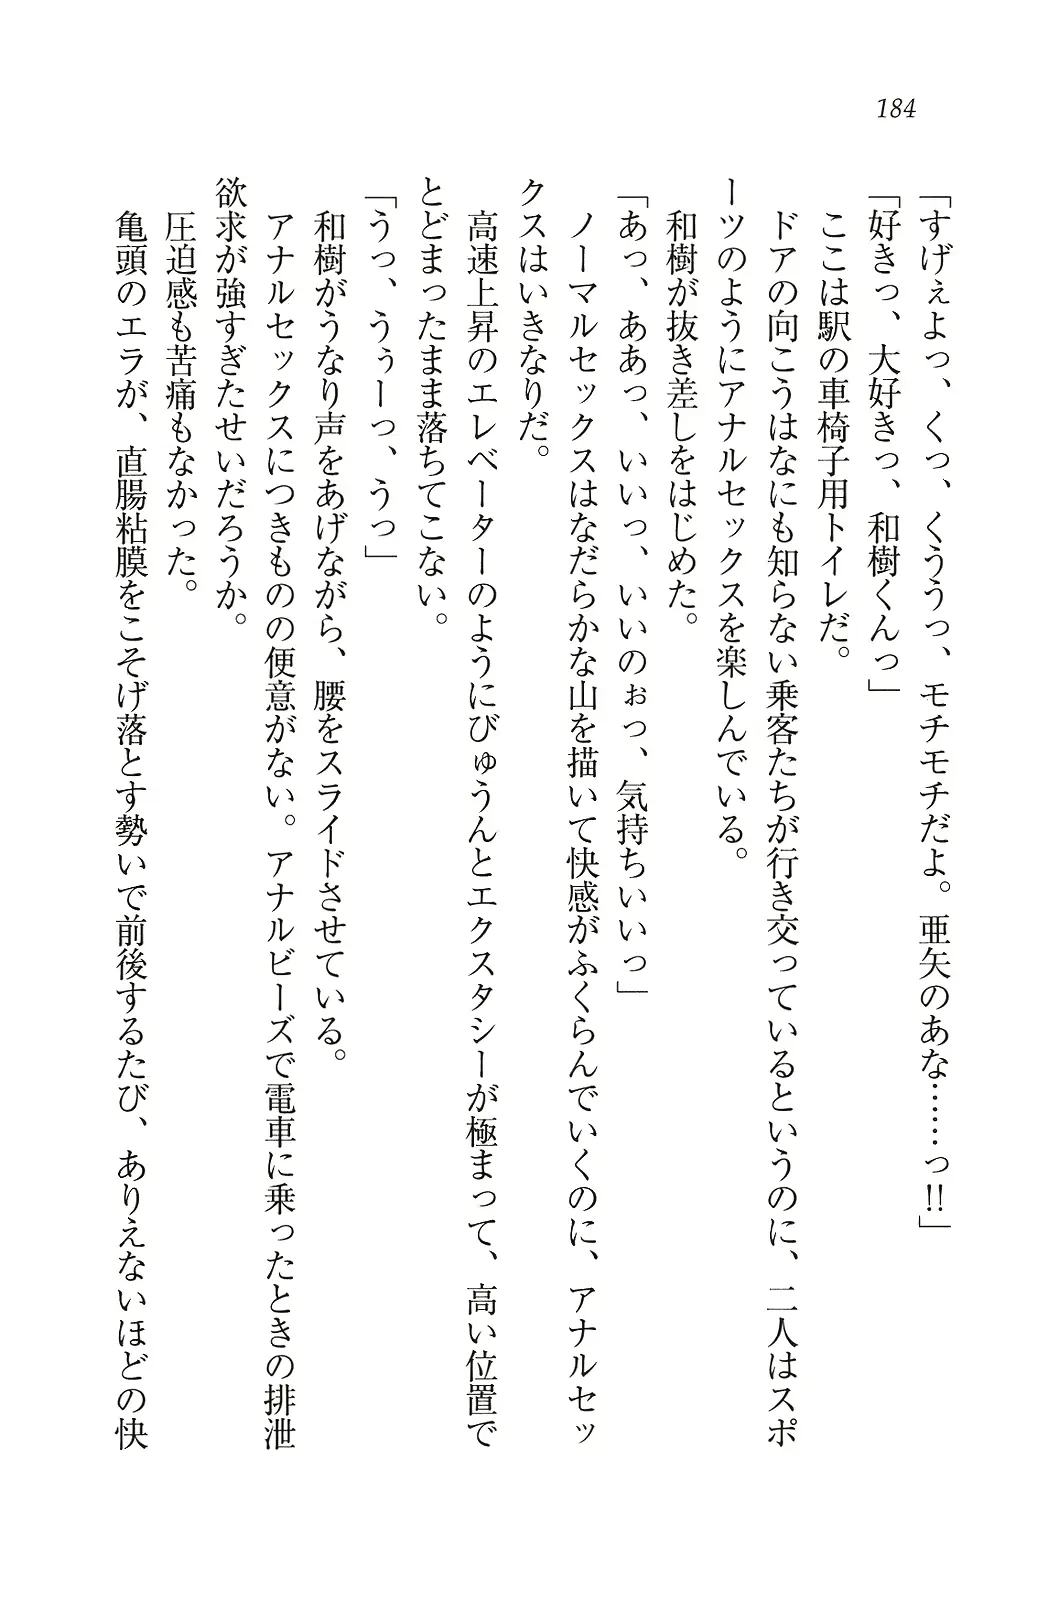 184
「すげぇよっ、くっ、くううっ、モチモチだよ。亜矢のあな……っ!!」
「好きっ、大好きっ、和樹くんっ」
ここは駅の車椅子用トイレだ。
ドアの向こうはなにも知らない乗客たちが行き交っているというのに、二人はスポ
ーツのようにアナルセックスを楽しんでいる。
和樹が抜き差しをはじめた。
「あっ、ああっ、いいっ、いいのぉっ、気持ちいいっ」
ノーマルセックスはなだらかな山を描いて快感がふくらんでいくのに、アナルセッ
クスはいきなりだ。
高速上昇のエレベーターのようにびゅうんとエクスタシーが極まって、高い位置で
とどまったまま落ちてこない。
「うっ、うぅーっ、うっ」
和樹がうなり声をあげながら、腰をスライドさせている。
アナルセックスにつきものの便意がない。アナルビーズで電車に乗ったときの排泄
欲求が強すぎたせいだろうか。
圧迫感も苦痛もなかった。
亀頭のエラが、直腸粘膜をこそげ落とす勢いで前後するたび、ありえないほどの快